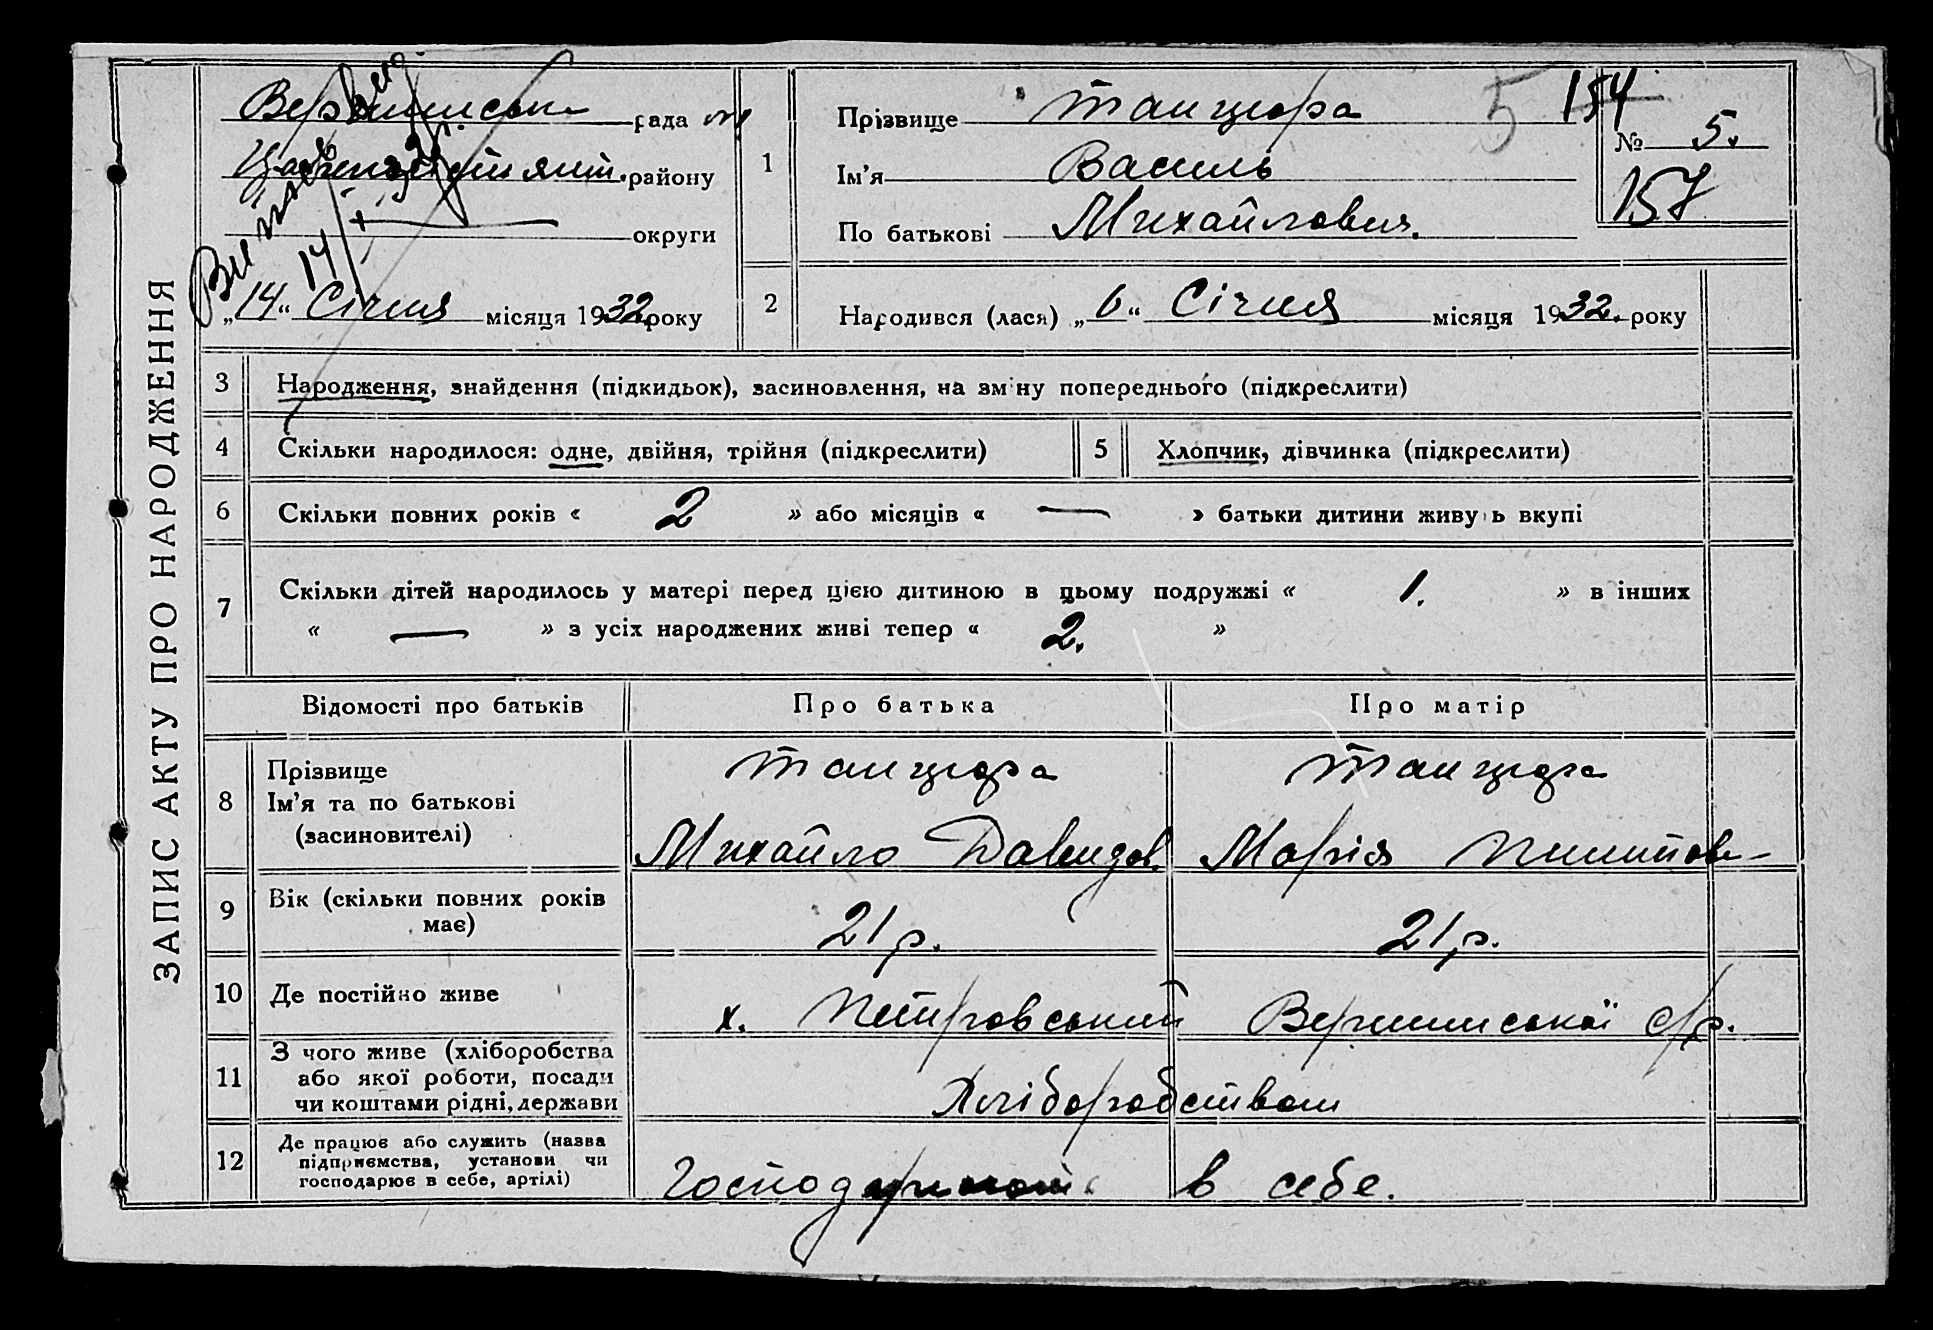 ЗАПИС АКТУ ПРО НАРОДЖЕННЯ
рада
району
округи
„14“ Січня місяця 1932 року
1
Прізвище Танцюра
Ім'я Василь
По батькові Михайлович.
5
154
№ 5.
157
2
Народився (лася) „6“ Січня місяця 1932. року
3 Народження, знайдення (підкидьок), засиновлення, на зміну попереднього (підкреслити)
4 Скільки народилося: одне, двійня, трійня (підкреслити) 5 Хлопчик, дівчинка (підкреслити)
6 Скільки повних років « 2 » або місяців « — » батьки дитини живуть вкупі
7 Скільки дітей народилось у матері перед цією дитиною в цьому подружжі « 1. » в інших
« — » з усіх народжених живі тепер « 2. »
Відомості про батьків Про батька Про матір
8 Прізвище
Ім'я та по батькові
(засиновителі)
Танцюра
Михайло Давидов.
Танцюра
Марія
9 Вік (скільки повних років
має)
21 р. 21 р.
10 Де постійно живе х. Петровський Вершинської с/р.
11 З чого живе (хліборобства
або якої роботи, посади
чи коштами рідні, держави
Хліборобством
12 Де працює або служить (назва
підприємства, установи чи
господарює в себе, артілі)
в себе.